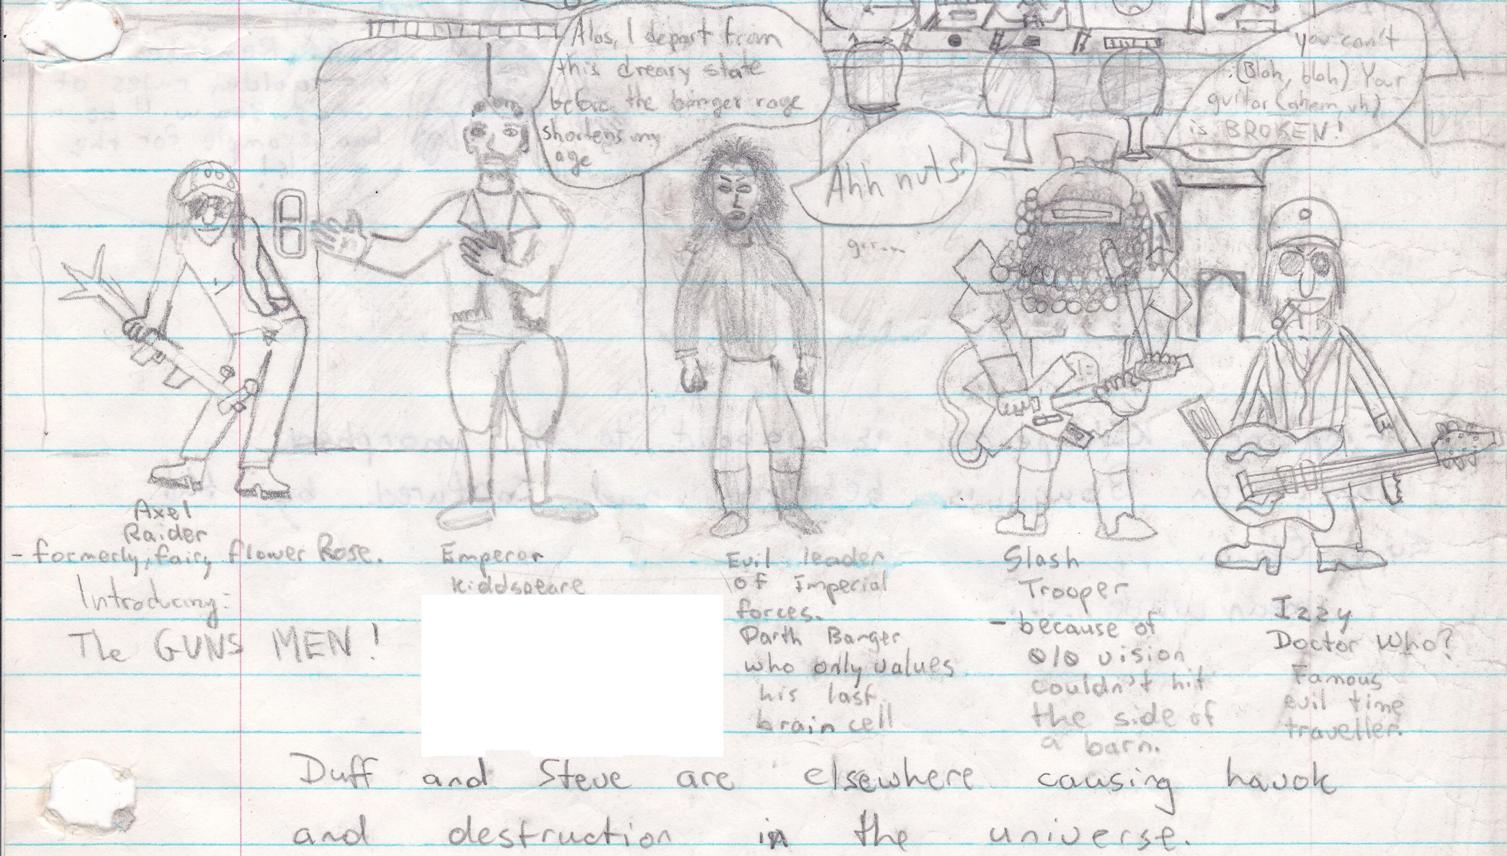 Alas, I depart from
this dreary state
before the banger rage
shortens my
age
Ahh nuts!
grrrn
You can't
(Blah, blah) Your
guitar (ahem uh)
is BROKEN!
Axel
Raider
- formerly, fairy flower Rose.
Introducing:
The GUNS MEN!
Emperor
Kiddspeare
Evil leader
of Imperial
forces.
Darth Banger
who only values
his last
brain cell
Slash
Trooper
- because of
0/0 vision
couldn't hit
the side of
a barn.
Izzy
Doctor Who?
Famous
evil time
traveller.
Duff and Steve are elsewhere causing havok
and destruction in the universe.